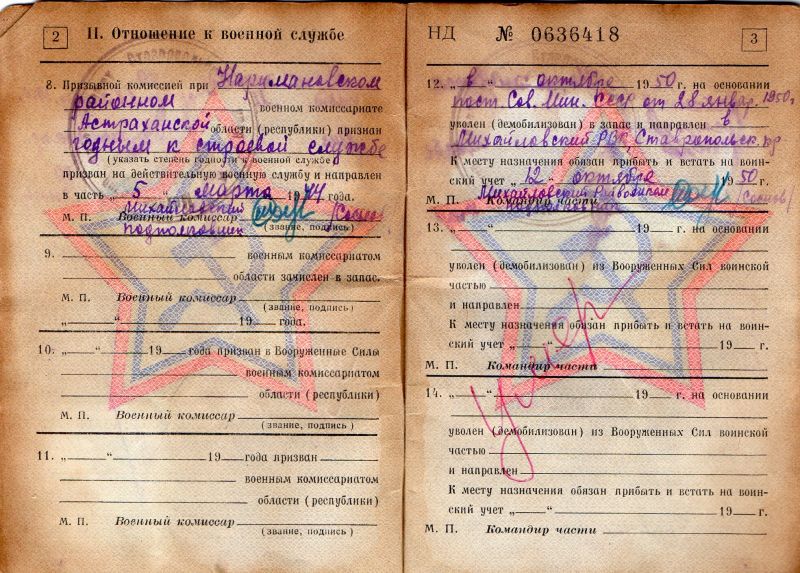 2 II. Отношение к военной службе
8. Призывной комиссией при Наримановском
районном военном комиссариате
Астраханской области (республики) признан
годным к строевой службе
(указать степень годности к военной службе)
призван на действительную военную службу и направлен
в часть „5“ марта 1944 года.
М. П. Военный Комиссар
Михайловский
подполковник
(звание, подпись)
9. военным комиссариатом
области зачислен в запас.
М. П. Военный комиссар
(звание, подпись)
„ “ 19 года.
10. „ “ 19 года призван в Вооруженные Силы
военным комиссариатом
области (республики)
М. П. Военный комиссар
(звание, подпись)
11. „ “ 19 года призван
военным комиссариатом
области (республики)
М. П. Военный комиссар
(звание, подпись)
НД № 0636418 3
12. „в“ октября 1950 г. на основании
пост. Сов. Мин. СССР от 28 январ. 1950 г.
уволен (демобилизован) в запас и направлен в
Михайловский РВК Ставропольск. кр
К месту назначения обязан прибыть и встать на воин-
ский учет „12“ октября 1950 г.
Михайловский Райвоенком
М. П. Командир части
подполковник
13. „ “ 19 г. на основании
уволен (демобилизован) из Вооруженных Сил воинской
частью
и направлен
К месту назначения обязан прибыть и встать на воин-
ский учет „ “ 19 г.
М. П. Командир части
Умер
14. „ “ 19 г. на основании
уволен (демобилизован) из Вооруженных Сил воинской
частью
и направлен
К месту назначения обязан прибыть и встать на воин-
ский учет „ “ 19 г.
М. П. Командир части